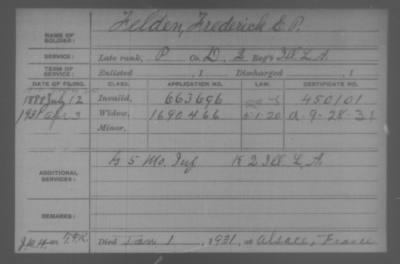 NAME OF SOLDIER: Felden, Frederick E. P.
SERVICE: Late rank, P Co. D, 2 Reg't Ill. L. A.
TERM OF SERVICE: Enlisted , 1 Discharged , 1
DATE OF FILING. CLASS. APPLICATION NO. LAW. CERTIFICATE NO.
1888 July 12 Invalid, 663696 450101
1931 Apr 3 Widow, 1690466 5-1-20 a. 9-28-31
Minor,
ADDITIONAL SERVICES: G 5 Mo. Inf K 2 Ill. L. A.
REMARKS:
Died Jan 1, 1931, at Alsace, France